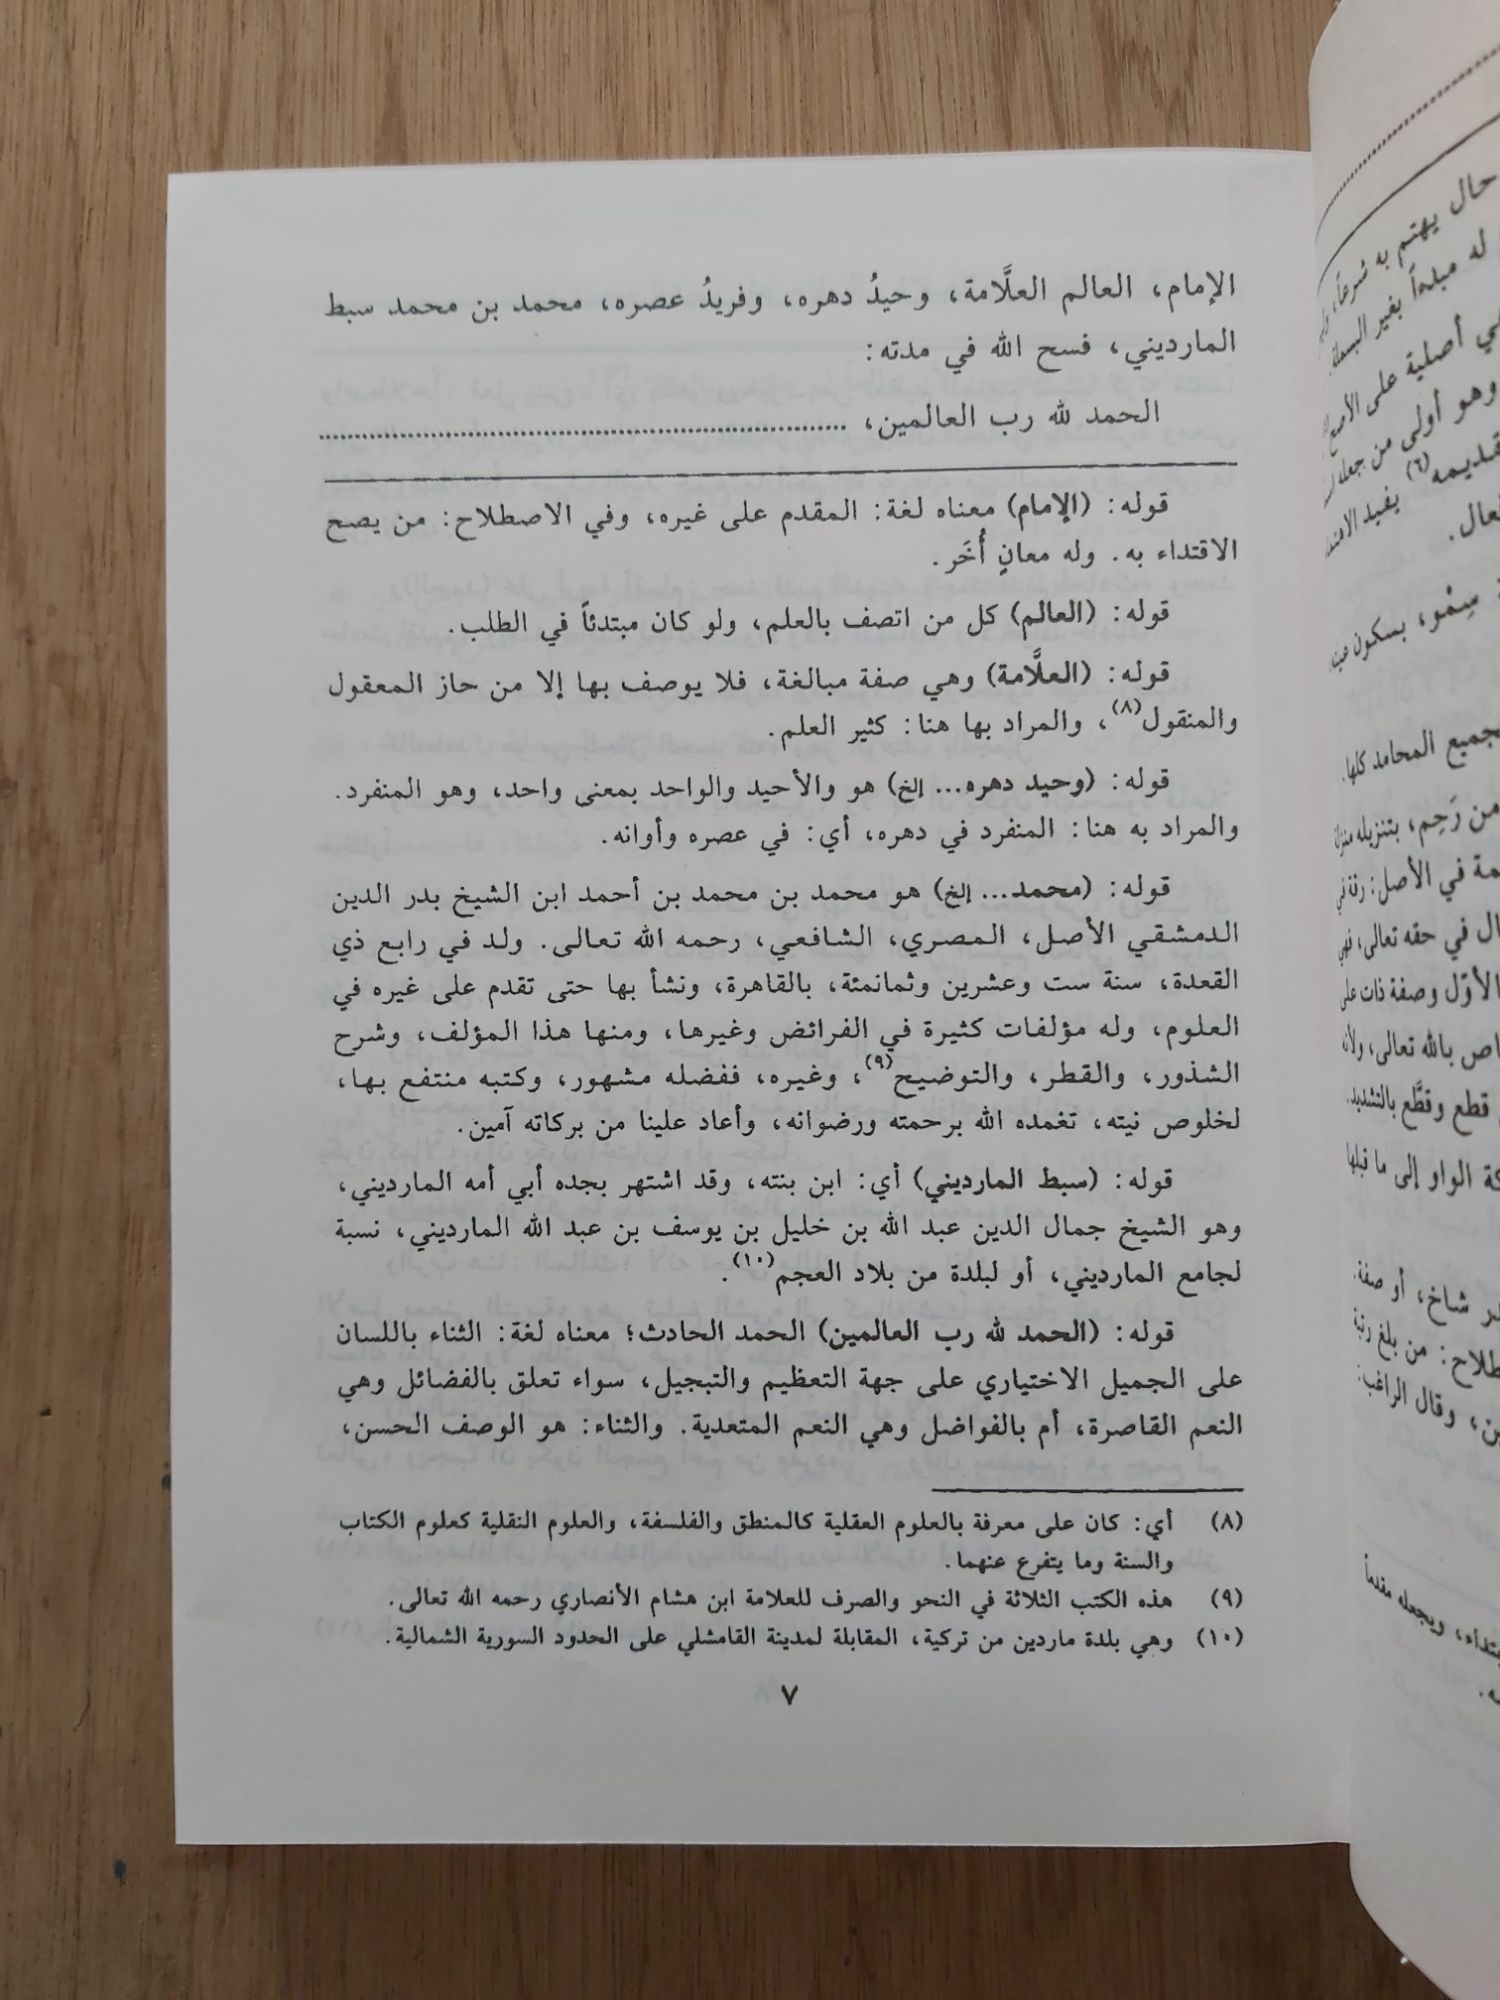 الإمام، العالم العلَّامة، وحيدُ دهره، وفريدُ عصره، محمد بن محمد سبط
المارديني، فسح الله في مدته:
الحمد لله رب العالمين، ....................................................
قوله: (الإمام) معناه لغة: المقدم على غيره، وفي الاصطلاح: من يصح
الاقتداء به. وله معانٍ أُخَر.
قوله: (العالم) كل من اتصف بالعلم، ولو كان مبتدئاً في الطلب.
قوله: (العلَّامة) وهي صفة مبالغة، فلا يوصف بها إلا من حاز المعقول
والمنقول(٨)، والمراد بها هنا: كثير العلم.
قوله: (وحيد دهره... إلخ) هو والأحيد والواحد بمعنى واحد، وهو المنفرد.
والمراد به هنا: المنفرد في دهره، أي: في عصره وأوانه.
قوله: (محمد... إلخ) هو محمد بن محمد بن أحمد ابن الشيخ بدر الدين
الدمشقي الأصل، المصري، الشافعي، رحمه الله تعالى. ولد في رابع ذي
القعدة، سنة ست وعشرين وثمانمئة، بالقاهرة، ونشأ بها حتى تقدم على غيره في
العلوم، وله مؤلفات كثيرة في الفرائض وغيرها، ومنها هذا المؤلف، وشرح
الشذور، والقطر، والتوضيح(٩)، وغيره، ففضله مشهور، وكتبه منتفع بها،
لخلوص نيته، تغمده الله برحمته ورضوانه، وأعاد علينا من بركاته آمين.
قوله: (سبط المارديني) أي: ابن بنته، وقد اشتهر بجده أبي أمه المارديني،
وهو الشيخ جمال الدين عبد الله بن خليل بن يوسف بن عبد الله المارديني، نسبة
لجامع المارديني، أو لبلدة من بلاد العجم(١٠).
قوله: (الحمد لله رب العالمين) الحمد الحادث؛ معناه لغة: الثناء باللسان
على الجميل الاختياري على جهة التعظيم والتبجيل، سواء تعلق بالفضائل وهي
النعم القاصرة، أم بالفواضل وهي النعم المتعدية. والثناء: هو الوصف الحسن،
(٨) أي: كان على معرفة بالعلوم العقلية كالمنطق والفلسفة، والعلوم النقلية كعلوم الكتاب
والسنة وما يتفرع عنهما.
(٩) هذه الكتب الثلاثة في النحو والصرف للعلامة ابن هشام الأنصاري رحمه الله تعالى.
(١٠) وهي بلدة ماردين من تركية، المقابلة لمدينة القامشلي على الحدود السورية الشمالية.
٧
حال يهتم به شرعاً،
له مبدءاً بغير البسملة
أصلية على
وهو أولى من جعله
(٦) يفيد
سِمْو، بسكون
المحامد كلها.
من رَحِم، بتنزيله
في الأصل: رقة في
في حقه تعالى، فهي
الأوّل وصفة ذات على
بالله تعالى، ولأنه
قطع وقطَّع بالتشديد.
الواو إلى ما قبلها
شاخ، أو صفة.
من بلغ رتبة
وقال الراغب:
ويجعله مقدماً